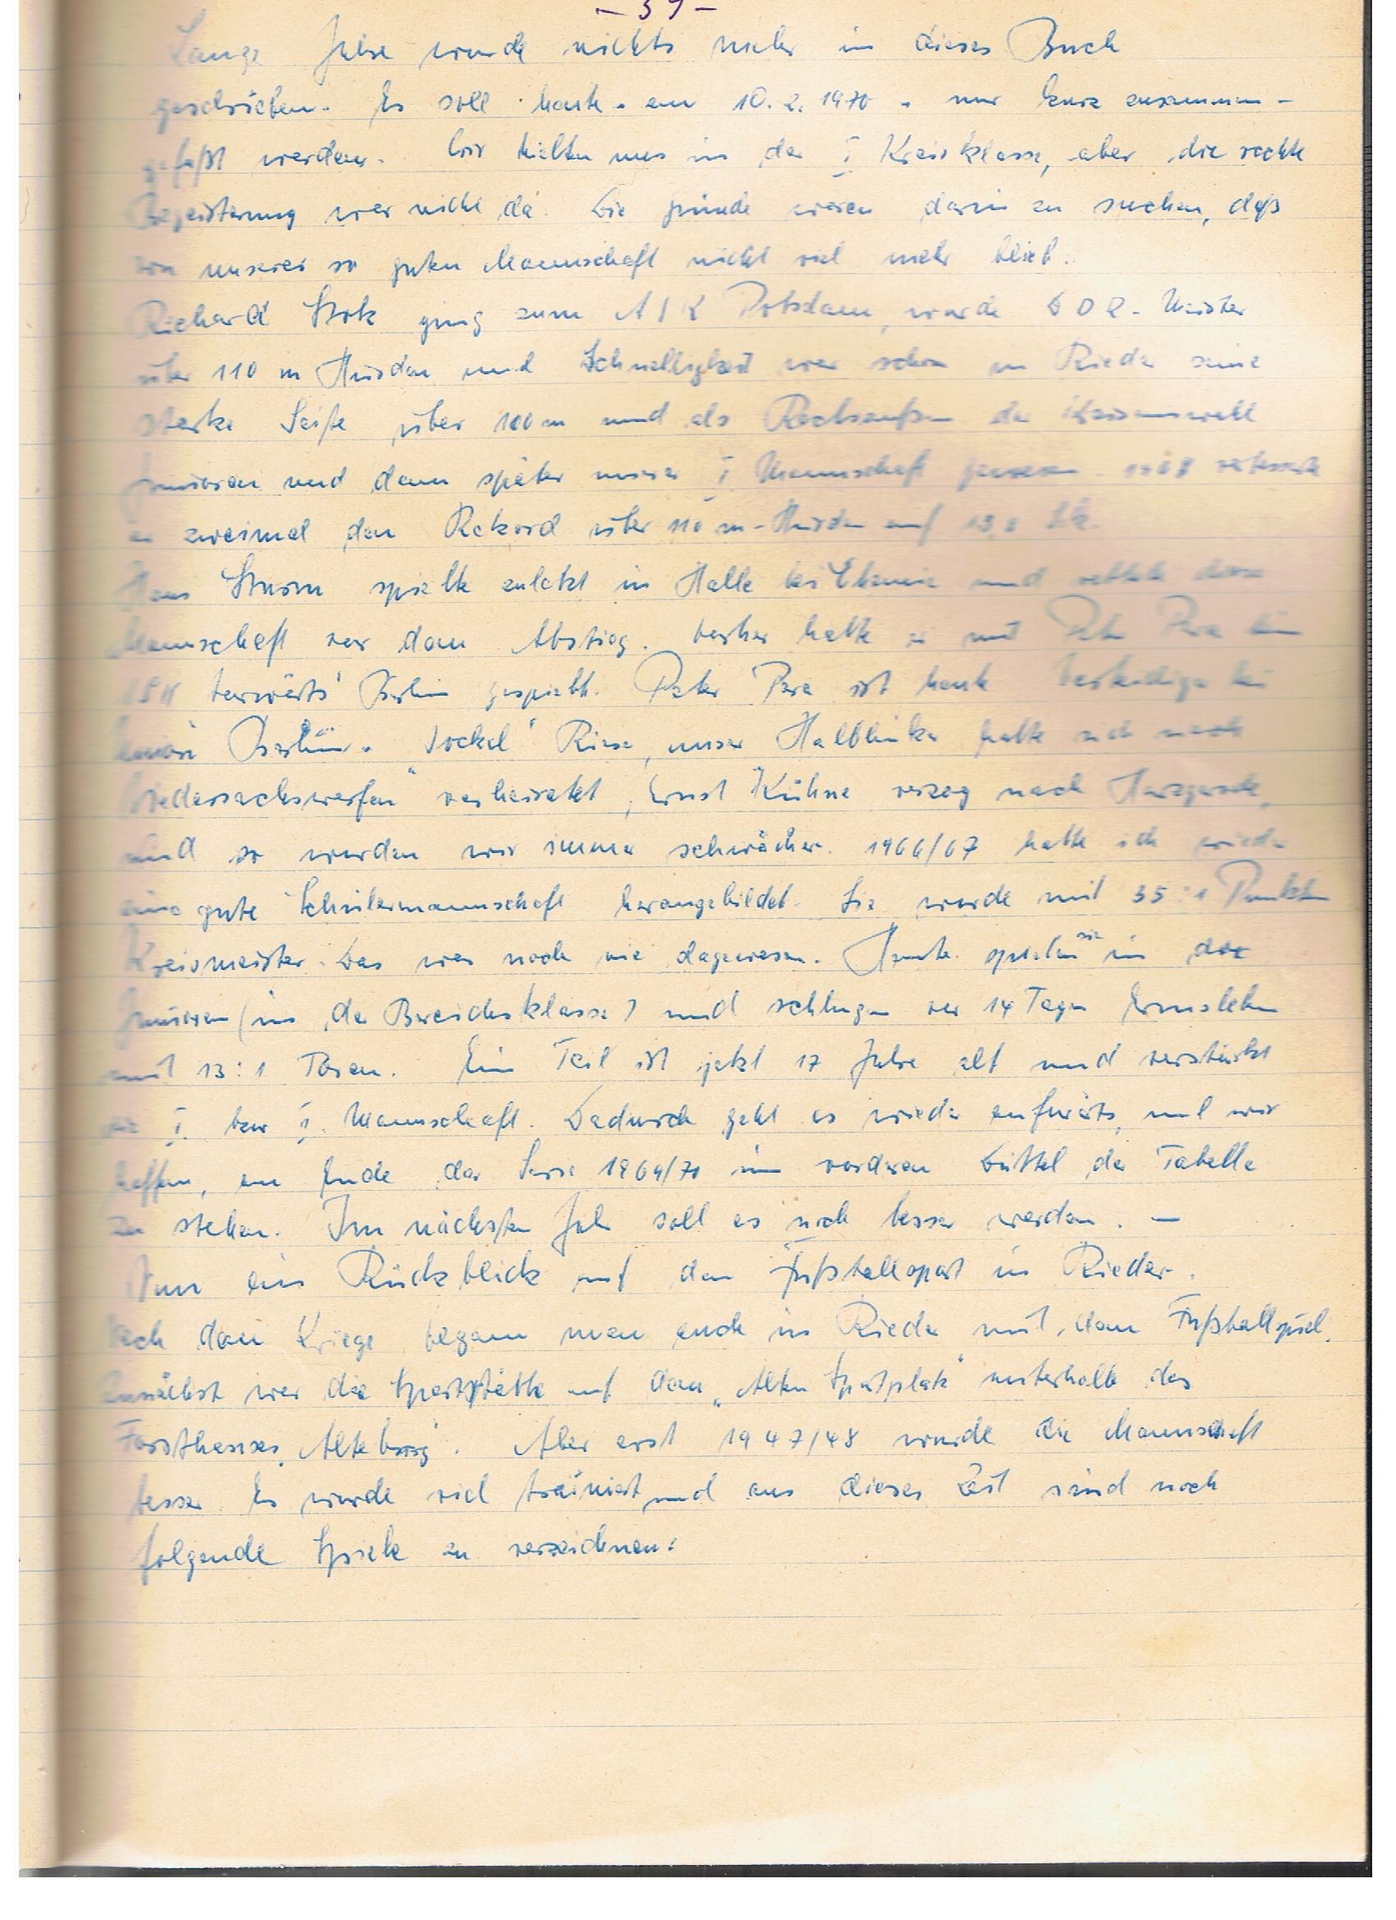 - 39 -
Lange Jahre wurde nichts mehr in dieses Buch
geschrieben. Es soll heute - am 10.2.1970 - nur kurz zusammen-
gefaßt werden. Wir hielten uns in der I Kreisklasse, aber die rechte
Begeisterung war nicht da. Die Gründe waren darin zu suchen, daß
von unserer so guten Mannschaft nicht viel mehr blieb.
Richard ging zum ASK Potsdam, wurde DDR-Meister
über 110 m Hürden und Schnelligkeit war schon in Rieder seine
starke Seite über 100 m und als Rechtsaußen der Kreisauswahl
Junioren und dann später unserer I Mannschaft gewesen. 1968 verbesserte
er zweimal den Rekord über 110 m-Hürden auf
Hans Sturm spielte zuletzt in Halle bei Chemie und rettete diese
Mannschaft vor dem Abstieg. Vorher hatte er mit Peter Para bei
ASK Vorwärts Berlin gespielt. Peter Para ist heute Verteidiger bei
Union Berlin. "Jockel" Riese, unser Halblinker hatte sich nach
Niedersachswerfen verheiratet, Ernst Kühne verzog nach Harzgerode,
und so wurden wir immer schwächer. 1966/67 hatte ich wieder
eine gute Schülermannschaft herangebildet. Sie wurde mit 35:1 Punkten
Kreismeister. Das war noch nie dagewesen. Heute spielen sie in der
Junioren (in der Bereichsklasse) und schlugen vor 14 Tagen Ermsleben
mit 13:1 Toren. Ein Teil ist jetzt 17 Jahre alt und verstärkt
die I. bzw. Mannschaft. Dadurch geht es wieder aufwärts, und wir
hoffen, am Ende der Serie 1969/70 im vorderen Drittel der Tabelle
zu stehen. Im nächsten Jahr soll es noch besser werden. -
Nun ein Rückblick auf den Fußballsport in Rieder.
Nach dem Kriege begann man auch in Rieder mit dem Fußballspiel.
Zunächst war die Sportstätte auf dem "Alten Sportplatz" unterhalb des
Forsthauses "Alteburg". Aber erst 1947/48 wurde die Mannschaft
besser. Es wurde viel trainiert und aus dieser Zeit sind noch
folgende Spiele zu verzeichnen: